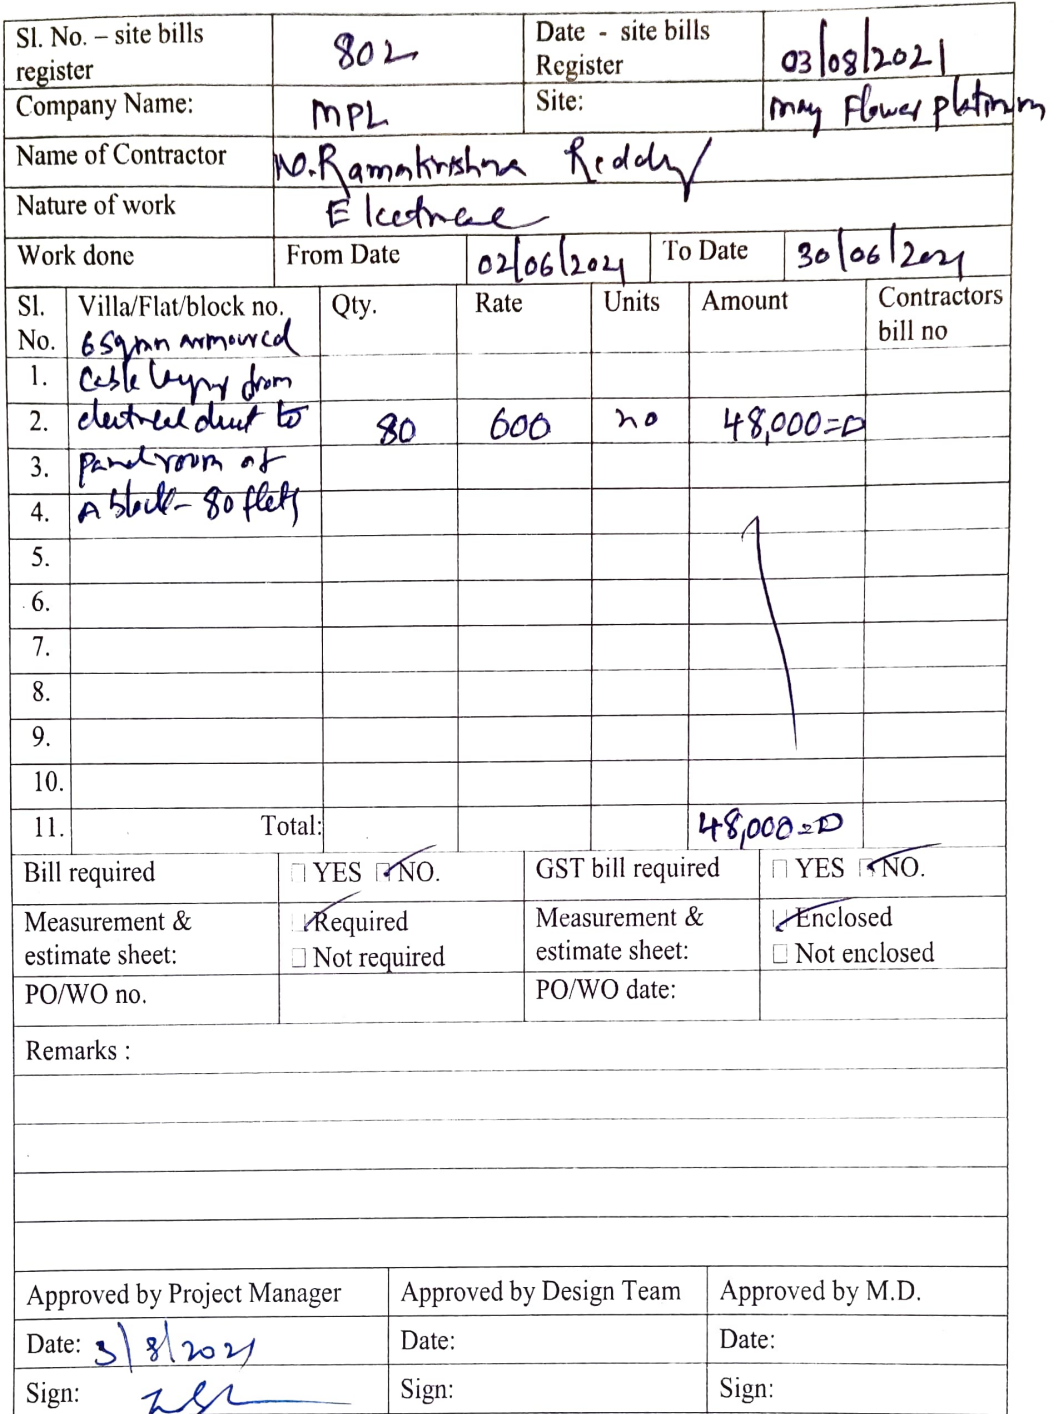 Sl. No. – site bills register 802 Date - site bills Register 03/08/2021
Company Name: MPL Site: may Flower platinum
Name of Contractor N.Ramakrishna Reddy
Nature of work Electrical
Work done From Date 02/06/2021 To Date 30/06/2021
Sl. No. Villa/Flat/block no. Qty. Rate Units Amount Contractors bill no
6 Sqmm armoured
1. Cable laying from
2. electrical duct to 80 600 no 48,000=0
3. panel room of
4. A block - 80 flats
5.
6.
7.
8.
9.
10.
11. Total: 48,000=0
Bill required YES NO. GST bill required YES NO.
Measurement & estimate sheet: Required Not required Measurement & estimate sheet: Enclosed Not enclosed
PO/WO no. PO/WO date:
Remarks :
Approved by Project Manager Approved by Design Team Approved by M.D.
Date: 3/8/2021 Date: Date:
Sign: Sign: Sign: